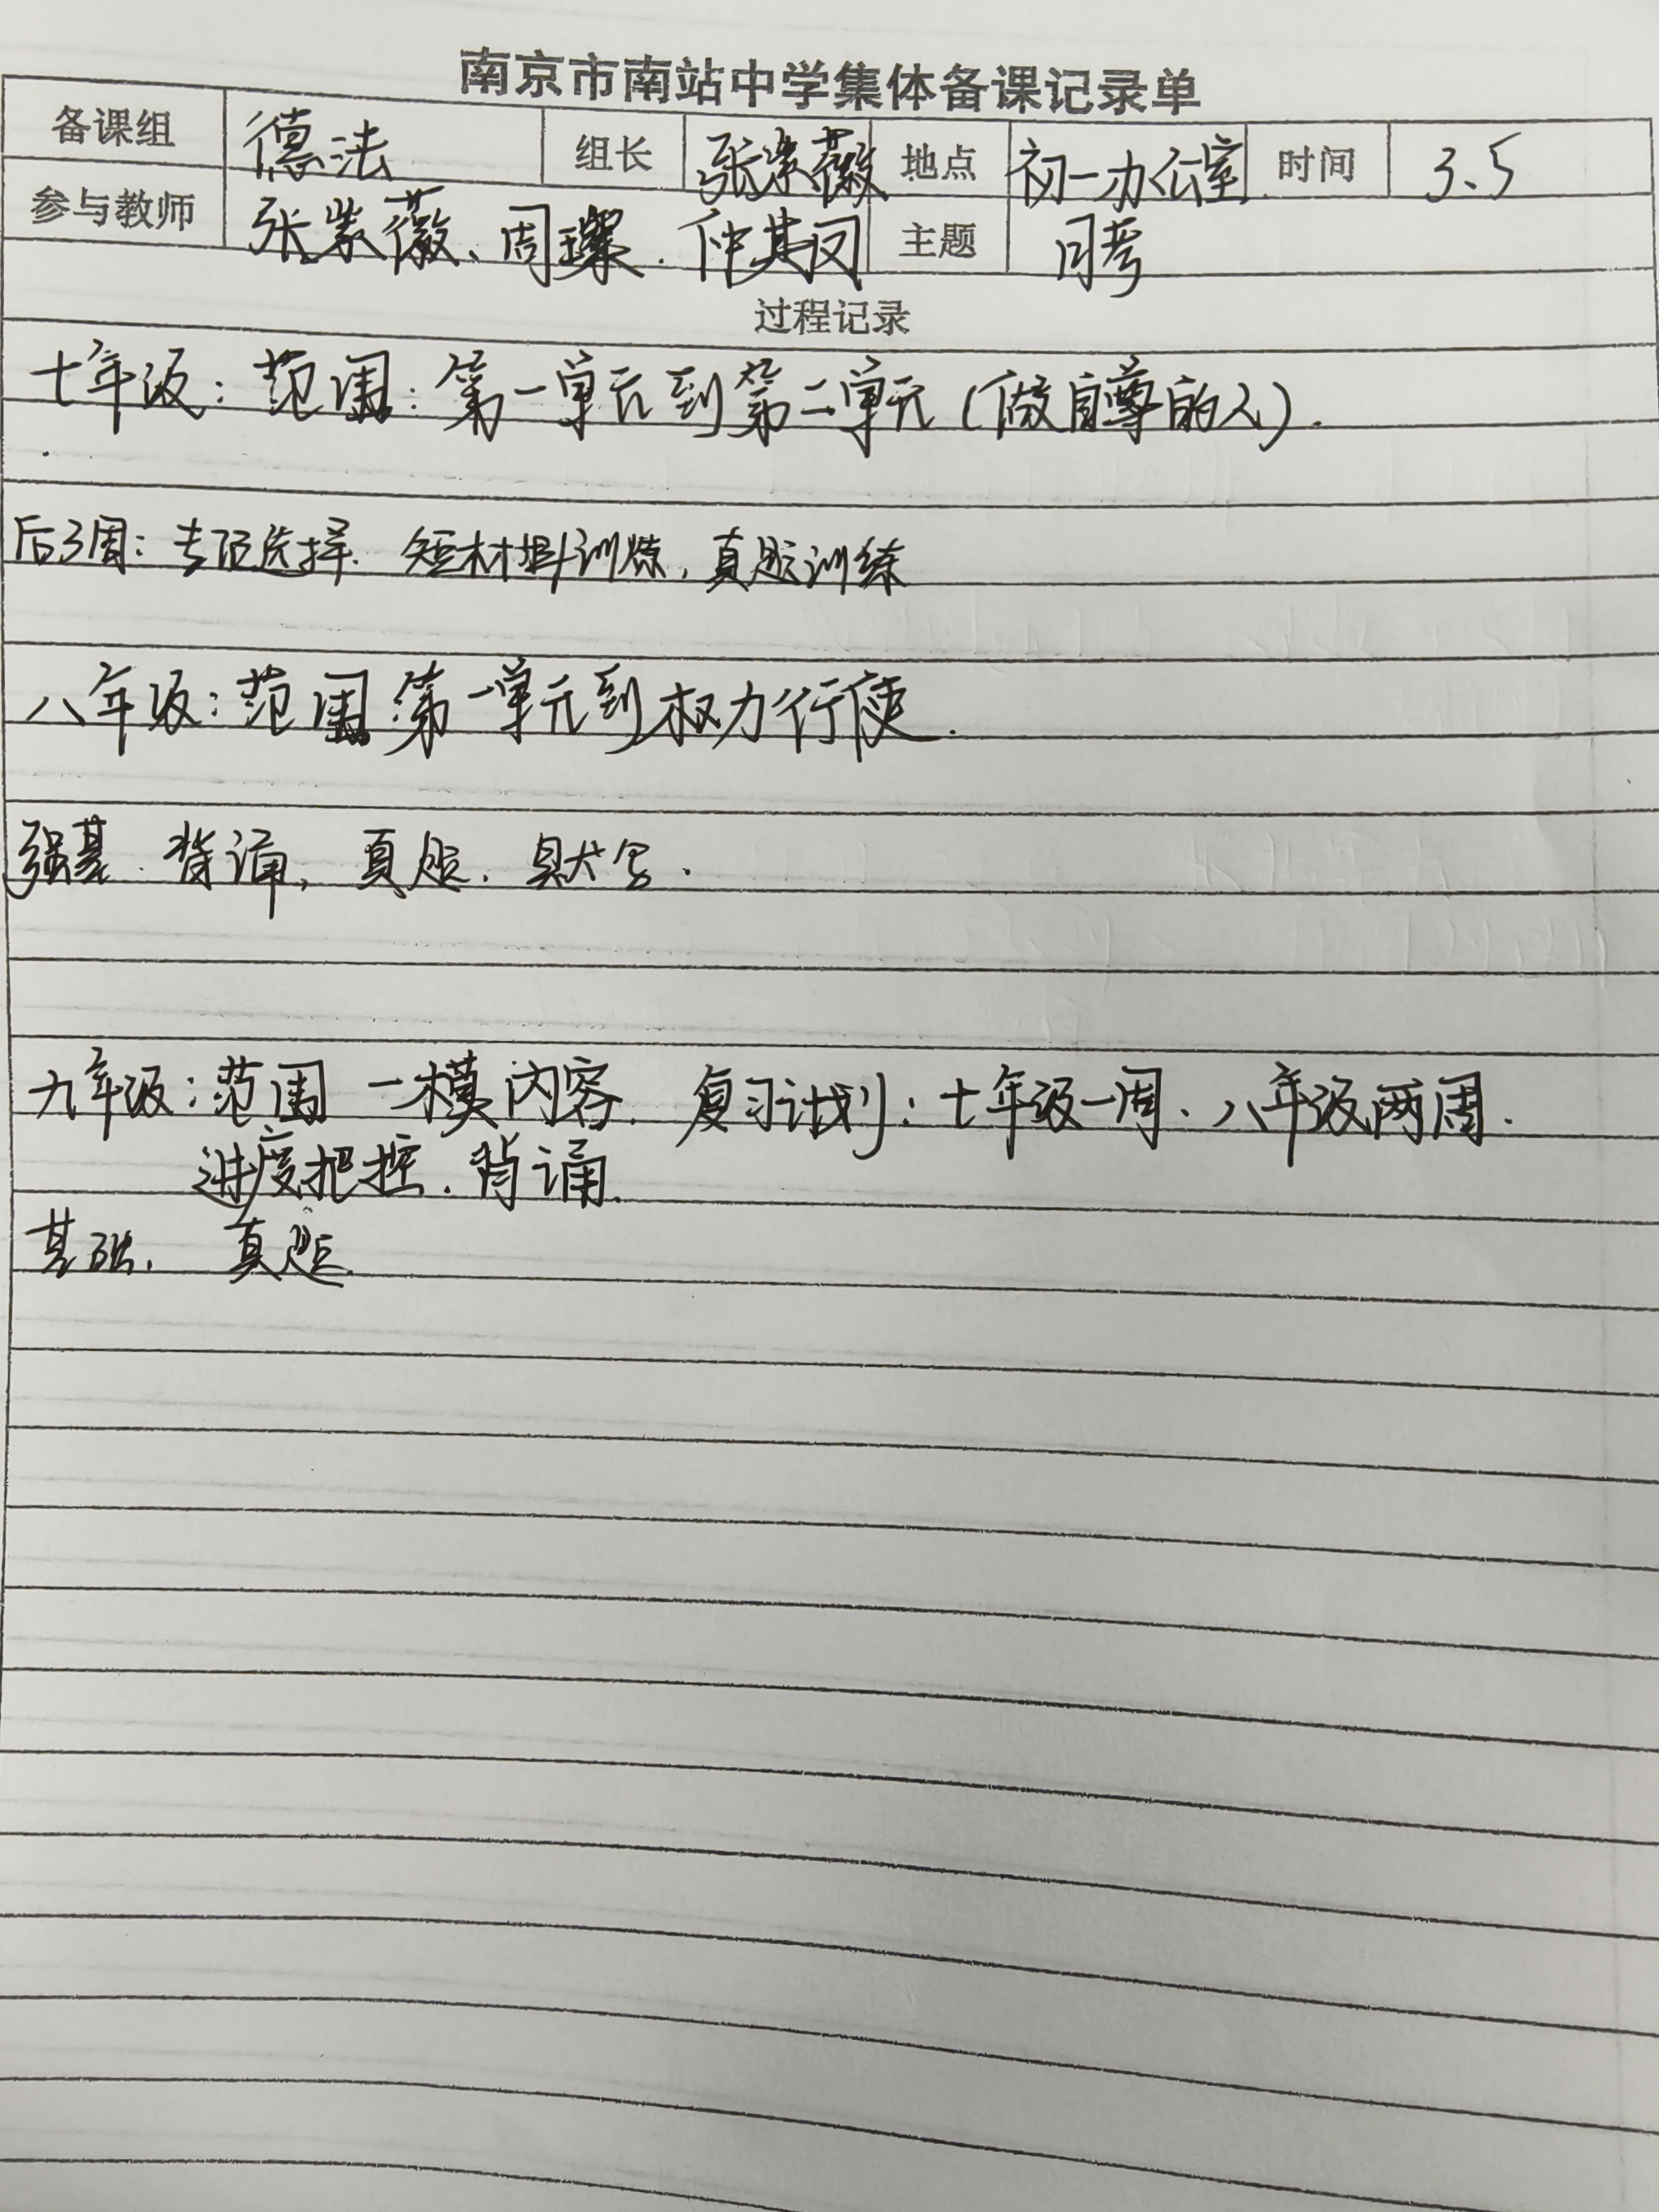 南京市南站中学集体备课记录单
备课组 德法 组长 张紫薇 地点 初一办公室 时间 3.5
参与教师 张紫薇、周璨、仲其凤 主题 月考
过程记录
七年级：范围：第一单元到第二单元（做自尊的人）.
后3周：专项选择. 短材料训练，真题训练
八年级：范围 第一单元到权力行使.
强基. 背诵，真题. 默写.
九年级：范围 一模内容. 复习计划：七年级一周、八年级两周.
进度把握. 背诵.
基础， 真题.